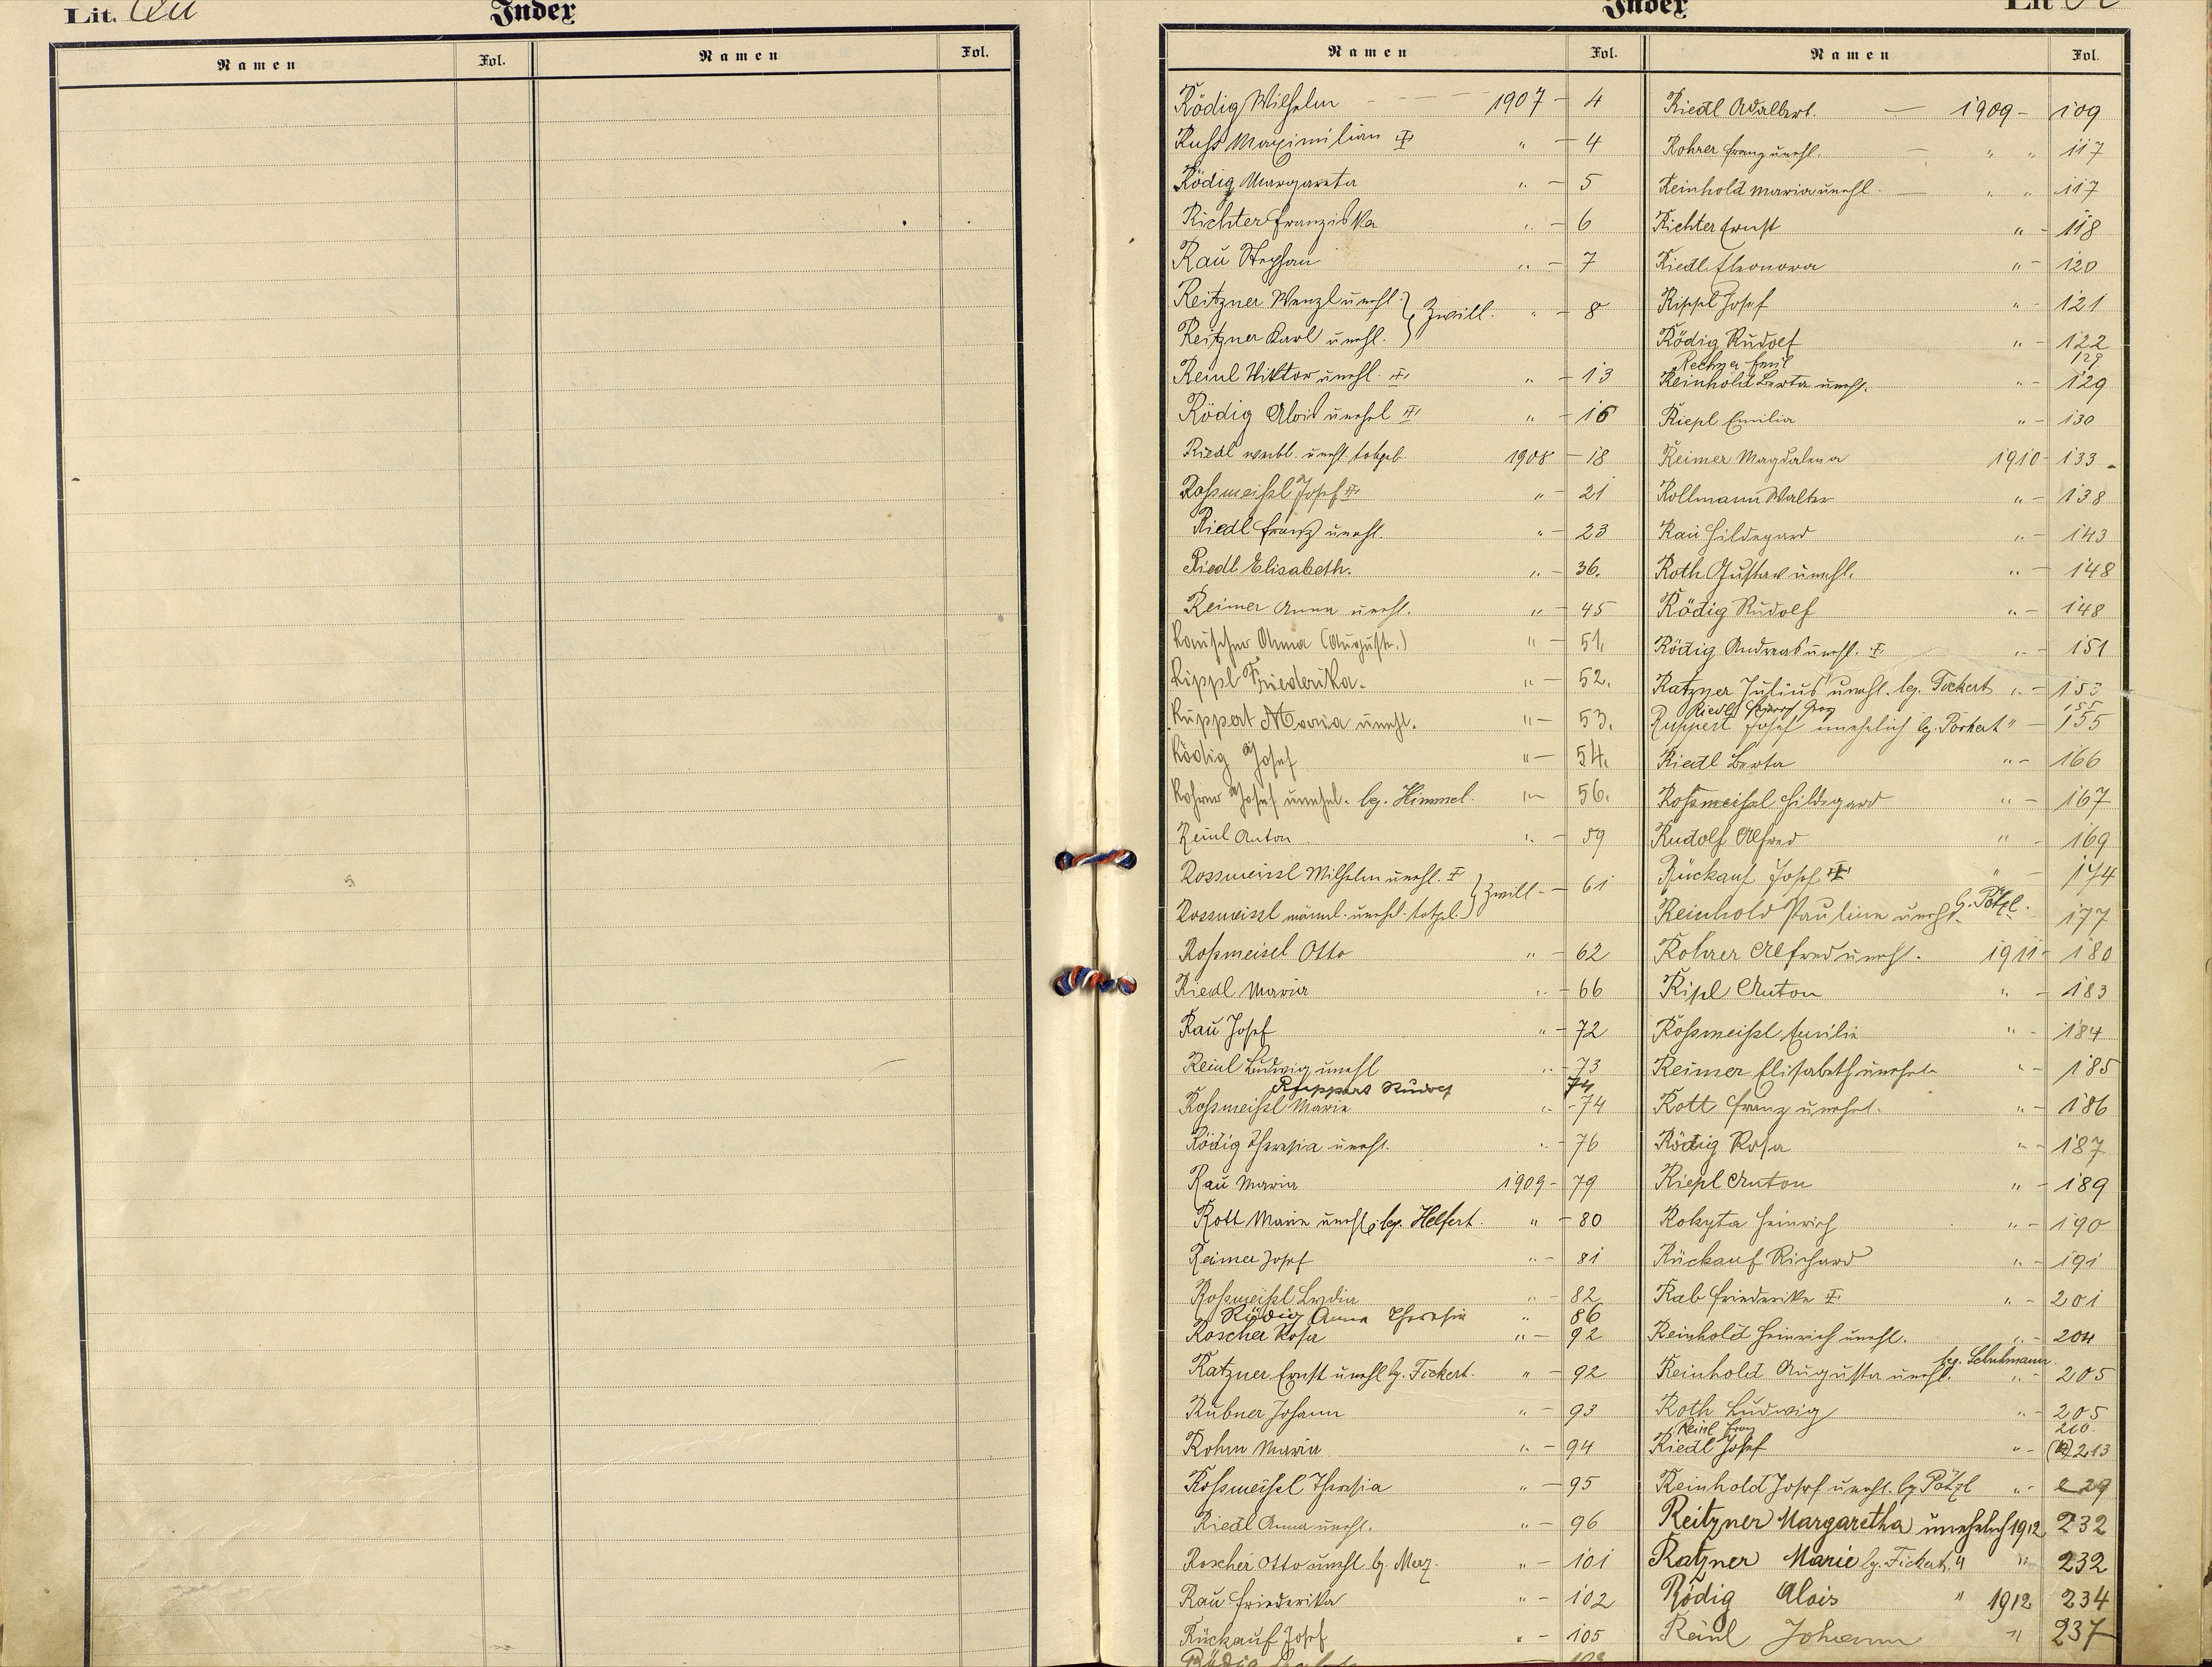 Lit. Qu
Index
Namen Fol. Namen Fol.
Index
Lit R
Namen Fol. Namen Fol.
Rödig Wilhelm - - - 1907 - 4
Russ Maximilian " - 4
Rödig Margareta " - 5
Richter Franziska " - 6
Rau Stephan " - 7
Reitzner Wenzl unehl. } Zwill. " - 8
Reitzner Karl unehl. }
Reinl Viktor unehl. " - 13
Rödig Alois unehel " - 16
Riedl weibl. unehl. totgeb. 1908 - 18
Roßmeißl Josef " - 21
Riedl Franz unehl. " - 23
Riedl Elisabeth. " - 36.
Reimer Anna unehl. " - 45
Rauscher Anna (Auguste.) " - 51.
Rippl Friederika. " - 52.
Ruppert Maria unehl. " - 53.
Rödig Josef " - 54.
Rohrer Josef unehel. lg. Himmel. " - 56.
Reinl Anton " - 59
Rossmeissl Wilhelm unehl. } Zwill. - 61
Rossmeissl männl. unehel. totgeb. }
Roßmeisel Otto " - 62
Riedl Maria " - 66
Rau Josef " - 72
Reinl Ludwig unehl " - 73
Ruppert Rudolf 74
Roßmeißl Marie " - 74
Rödig Theresia unehl. " - 76
Rau Maria 1909 - 79
Rott Marie unehl., lg. Helfert. " - 80
Reimer Josef " - 81
Roßmeißl Lydia " - 82
Rödig Anna Theresia " 86
Roscher Rosa " - 92
Ratzner Ernst unehl lg. Fickert. " - 92
Rubner Johann " - 93
Rohm Maria " - 94
Roßmeißl Theresia " - 95
Riedl Anna unehl. " - 96
Roscher Otto unehl lg. " - 101
Rau Friederika " - 102
Rückauf Josef " - 105
Rödig
Riedl Adalbert. - 1909 - 109
Rohrer Franz unehl. - " " 117
Reinhold Maria unehl. " " 117
Richter Ernst " - 118
Riedl Eleonora " - 120
Rippl Josef " - 121
Rödig Rudolf " - 122
Emil 129
Reinhold Berta unehl. " - 129
Riepl Emilia " - 130
Reimer Magdalena 1910 - 133
Rollmann Walter " - 138
Rau Hildegard " - 143
Roth Gustav unehl. " - 148
Rödig Rudolf " - 148
Rödig Andreas unehl. " - 151
Ratzner Julius unehl. lg. Fickert " - 153
Riedl Georg 155
Ruppert Josef unehelich lg. Porkert " - 155
Riedl Berta " - 166
Roßmeißl Hildegard " - 167
Rudolf Alfred " - 169
Rückauf Josef " - 174
Reinhold Pauline unehl. lg. Pötzl. 177
Rohrer Alfred unehl. 1911 - 180
Ripl Anton " - 183
Roßmeißl Emilie " - 184
Reimer Elisabeth unehel. " - 185
Rott Franz unehel. " - 186
Rödig Rosa " - 187
Riepl Anton " - 189
Rokyta Heinrich " - 190
Rückauf Richard " - 191
Rab Friederike " - 201
Reinhold Heinrich unehl. " - 204
Reinhold Augusta unehl. leg. Schuhmann. " - 205
Roth Ludwig " - 205
Reinl Franz 210.
Riedl Josef " - 213
Reinhold Josef unehl. lg Pötzl " - 229
Reitzner Margaretha unehelich 1912 232
Ratzner Marie lg. Fickert. " " 232
Rödig Alois " 1912 234
Reinl Johann " 237